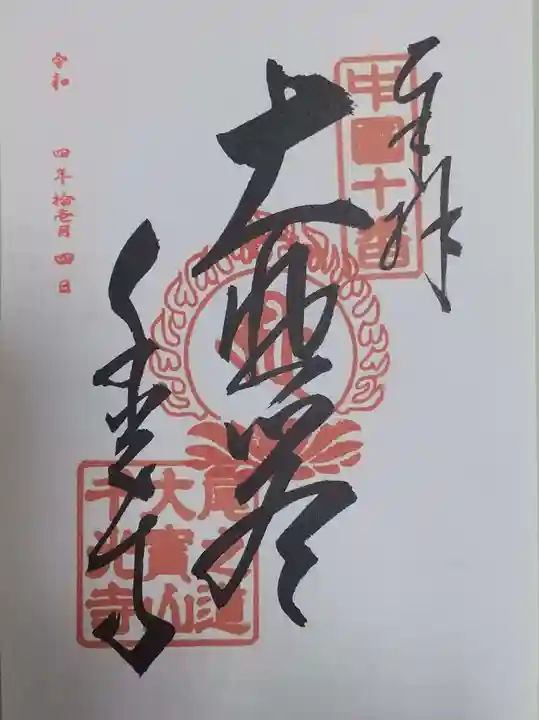 奉拝
中國十番
大悲閣
千光寺
尾之道
大寶山
千光寺
令和 四年拾壱月四日